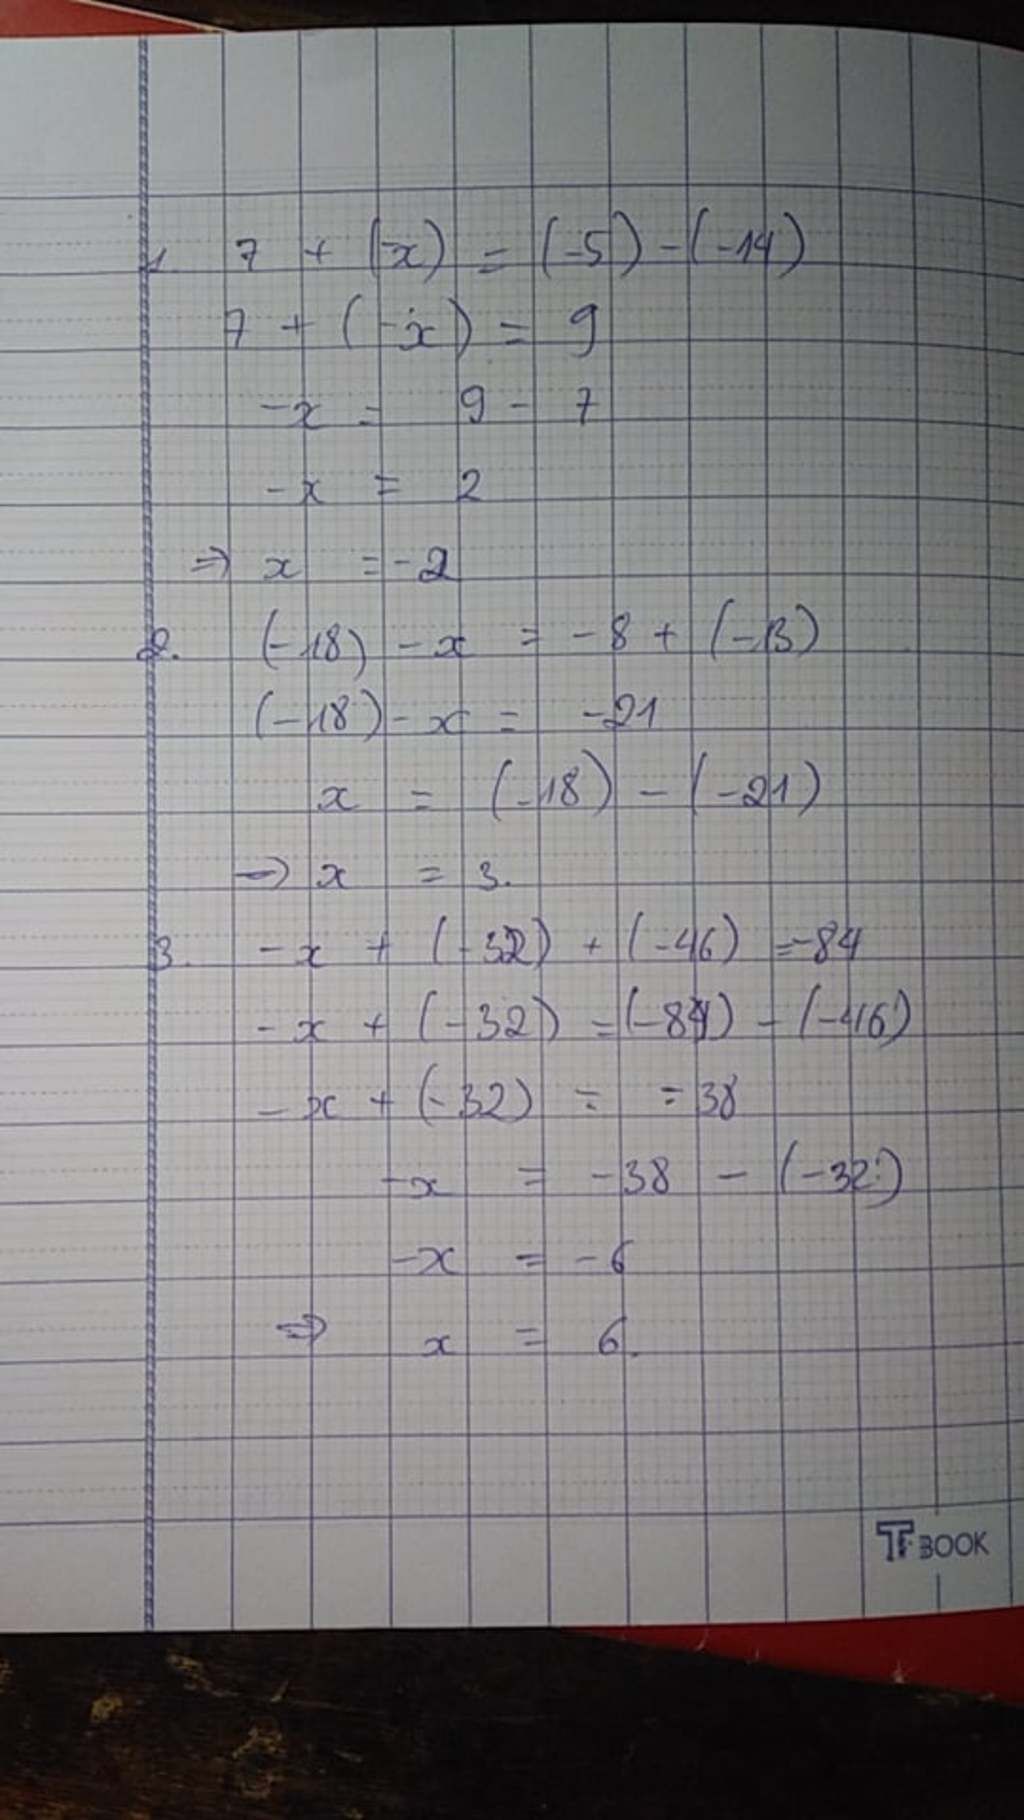 1. 7 + (-x) = (-5) - (-14)
7 + (-x) = 9
-x = 9 - 7
-x = 2
⇒ x = -2
2. (-18) - x = -8 + (-13)
(-18) - x = -21
x = (-18) - (-21)
⇒ x = 3.
3. -x + (-32) + (-46) = -84
-x + (-32) = (-84) - (-46)
-x + (-32) = -38
-x = -38 - (-32)
-x = -6
⇒ x = 6.
BOOK